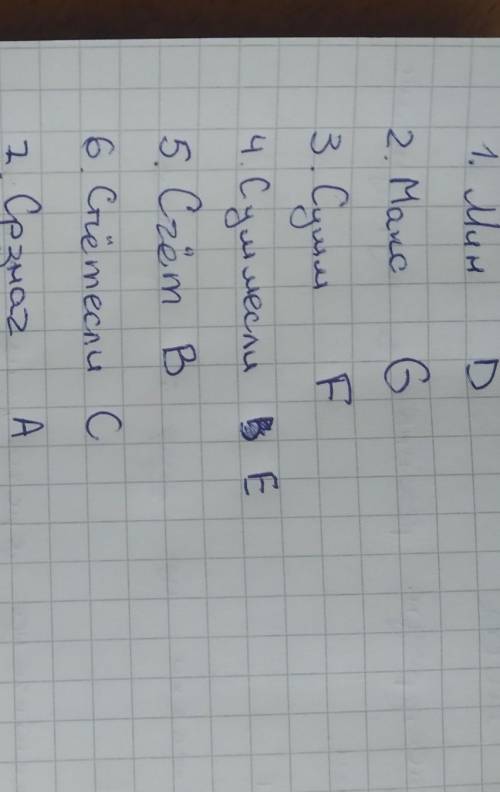 1. Мин D
2. Макс G
3. Сумм F
4. Суммесли E
5. Счёт B
6. Счётесли C
7. Срзнач A